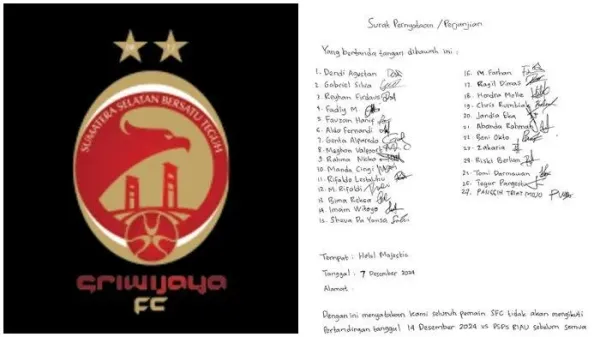 SUMATERA SELATAN BERSATU TEGUH
SRIWIJAYA
FC
Surat Pernyataan / Perjanjian
Yang bertanda tangan dibawah ini :
1. Dendi Agustan
2. Gabriel Silva
3. Rayhan Firdaus
4. Fadly M.
5. Fauzan Hanif
6. Aldo Fernandi
7. Gonta Alparedo
8.
9. Rahma Nicko
10. Manda Cingi
11. Rifaldo Lestaluhu
12. M. Rifaldi
13. Bima Rekso
14. Imam Witoyo
15. Sheva Da Vonso
16. M. Farhan
17. Ragil Dimas
18. Hendra Molle
19. Chris Rumbiak
20. Jandia Eka
21. Abanda Rahman
22. Beni Okto
23. Zakaria
24. Riski Berlian
25. Tomi Darmawan
26. Tegar Pangestu
27. PANGGIH
Tempat : Hotel Majestic
Tanggal : 7 Desember 2024
Alamat :
Dengan ini menyatakan kami seluruh pemain SFC tidak akan mengikuti
Pertandingan tanggal 14 Desember 2024 vs PSPS RIAU sebelum semua